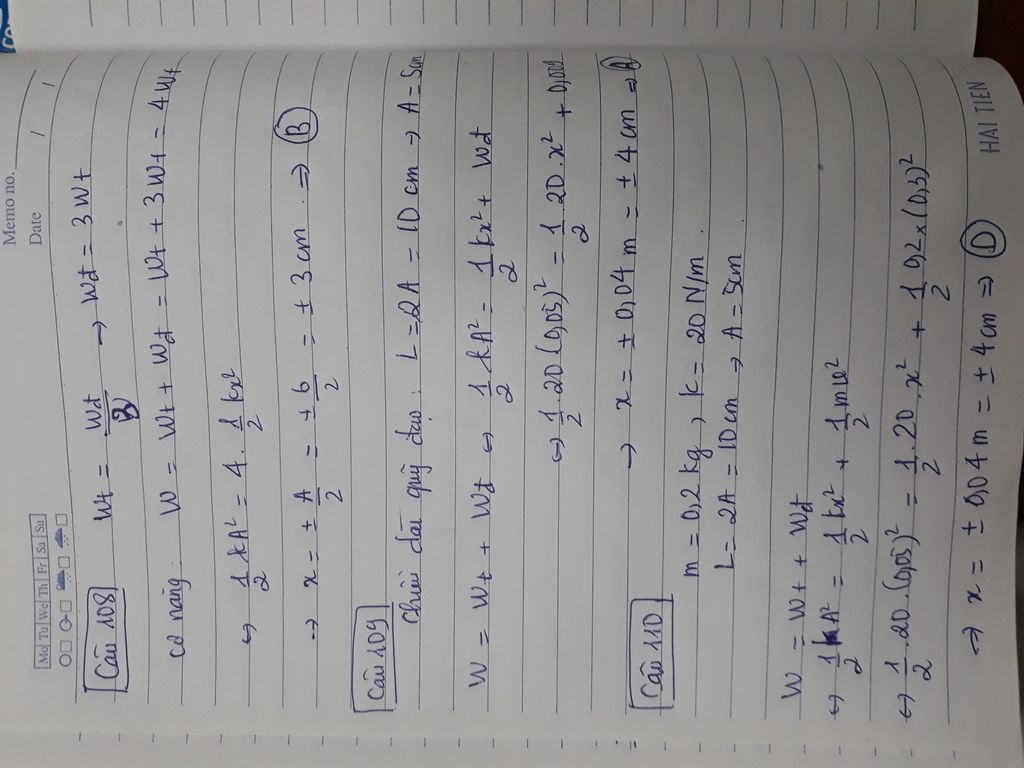 Memo no.
Date / /
Mo Tu We Th Fr Sa Su
Câu 108
Wt = Wđ/3 → Wđ = 3Wt
Cơ năng: W = Wt + Wđ = Wt + 3Wt = 4Wt
⇔ 1/2 kA² = 4 . 1/2 kx²
→ x = ± A/2 = ± 6/2 = ± 3 cm ⇒ B
Câu 109
Chiều dài quỹ đạo: L = 2A = 10 cm → A = 5cm
W = Wt + Wđ ⇔ 1/2 kA² = 1/2 kx² + Wđ
⇔ 1/2 20 (0,05)² = 1/2 . 20 . x² + 0,009
→ x = ± 0,04 m = ± 4 cm ⇒ A
Câu 110
m = 0,2 kg, k = 20 N/m.
L = 2A = 10 cm → A = 5cm
W = Wt + Wđ
⇔ 1/2 kA² = 1/2 kx² + 1/2 mv²
⇔ 1/2 . 20 . (0,05)² = 1/2 . 20 . x² + 1/2 0,2 x (0,3)²
→ x = ± 0,04 m = ± 4 cm ⇒ D
HAI TIEN